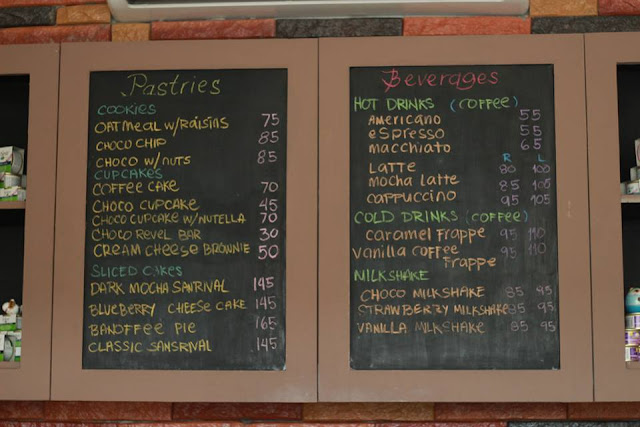 Pastries
COOKIES
OATMEAL W/RAISINS 75
CHOCO CHIP 85
CHOCO W/NUTS 85
CUPCAKES
COFFEE CAKE 70
CHOCO CUPCAKE 45
CHOCO CUPCAKE W/NUTELLA 70
CHOCO REVEL BAR 30
CREAM CHEESE BROWNIE 50
SLICED CAKES
DARK MOCHA SANRIVAL 145
BLUEBERRY CHEESE CAKE 145
BANOFFEE PIE 165
CLASSIC SANSRIVAL 145
Beverages
HOT DRINKS (COFFEE)
AMERICANO 55
ESPRESSO 55
MACCHIATO 65
R L
LATTE 80 100
MOCHA LATTE 85 105
CAPPUCCINO 95 105
COLD DRINKS (COFFEE)
CARAMEL FRAPPE 95 110
VANILLA COFFEE FRAPPE 95 110
MILKSHAKE
CHOCO MILKSHAKE 85 95
STRAWBERRY MILKSHAKE 85 95
VANILLA MILKSHAKE 85 95